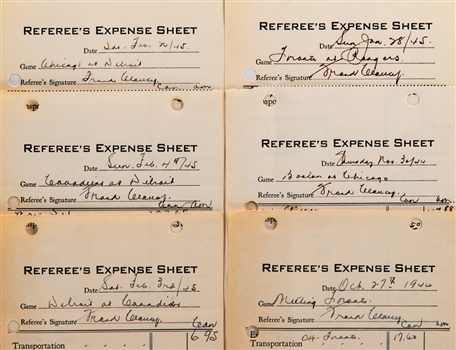 REFEREE'S EXPENSE SHEET
Date Sat. Feb. /45.
Game Chicago at Detroit
Referee's Signature Frank Clancy.
Can Am
REFEREE'S EXPENSE SHEET
Date Sun. Jan. 28/45.
Game Toronto at Rangers.
Referee's Signature Frank Clancy.
Can Am
REFEREE'S EXPENSE SHEET
Date Sun. Feb. 4th/45
Game Canadiens at Detroit
Referee's Signature Frank Clancy.
Can Am
REFEREE'S EXPENSE SHEET
Date Thursday Nov 30/44
Game Boston at Chicago
Referee's Signature Frank Clancy.
Can Am
REFEREE'S EXPENSE SHEET
Date Sat. Feb. 3rd/45
Game Detroit at Canadiens
Referee's Signature Frank Clancy
Can
Transportation 6 95
REFEREE'S EXPENSE SHEET
Date Oct. 27th 1944
Game Meeting Toronto.
Referee's Signature Frank Clancy
Can Am
Transportation Toronto. 17.60